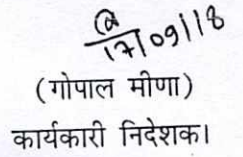 17/09/18
(गोपाल मीणा)
कार्यकारी निदेशक।